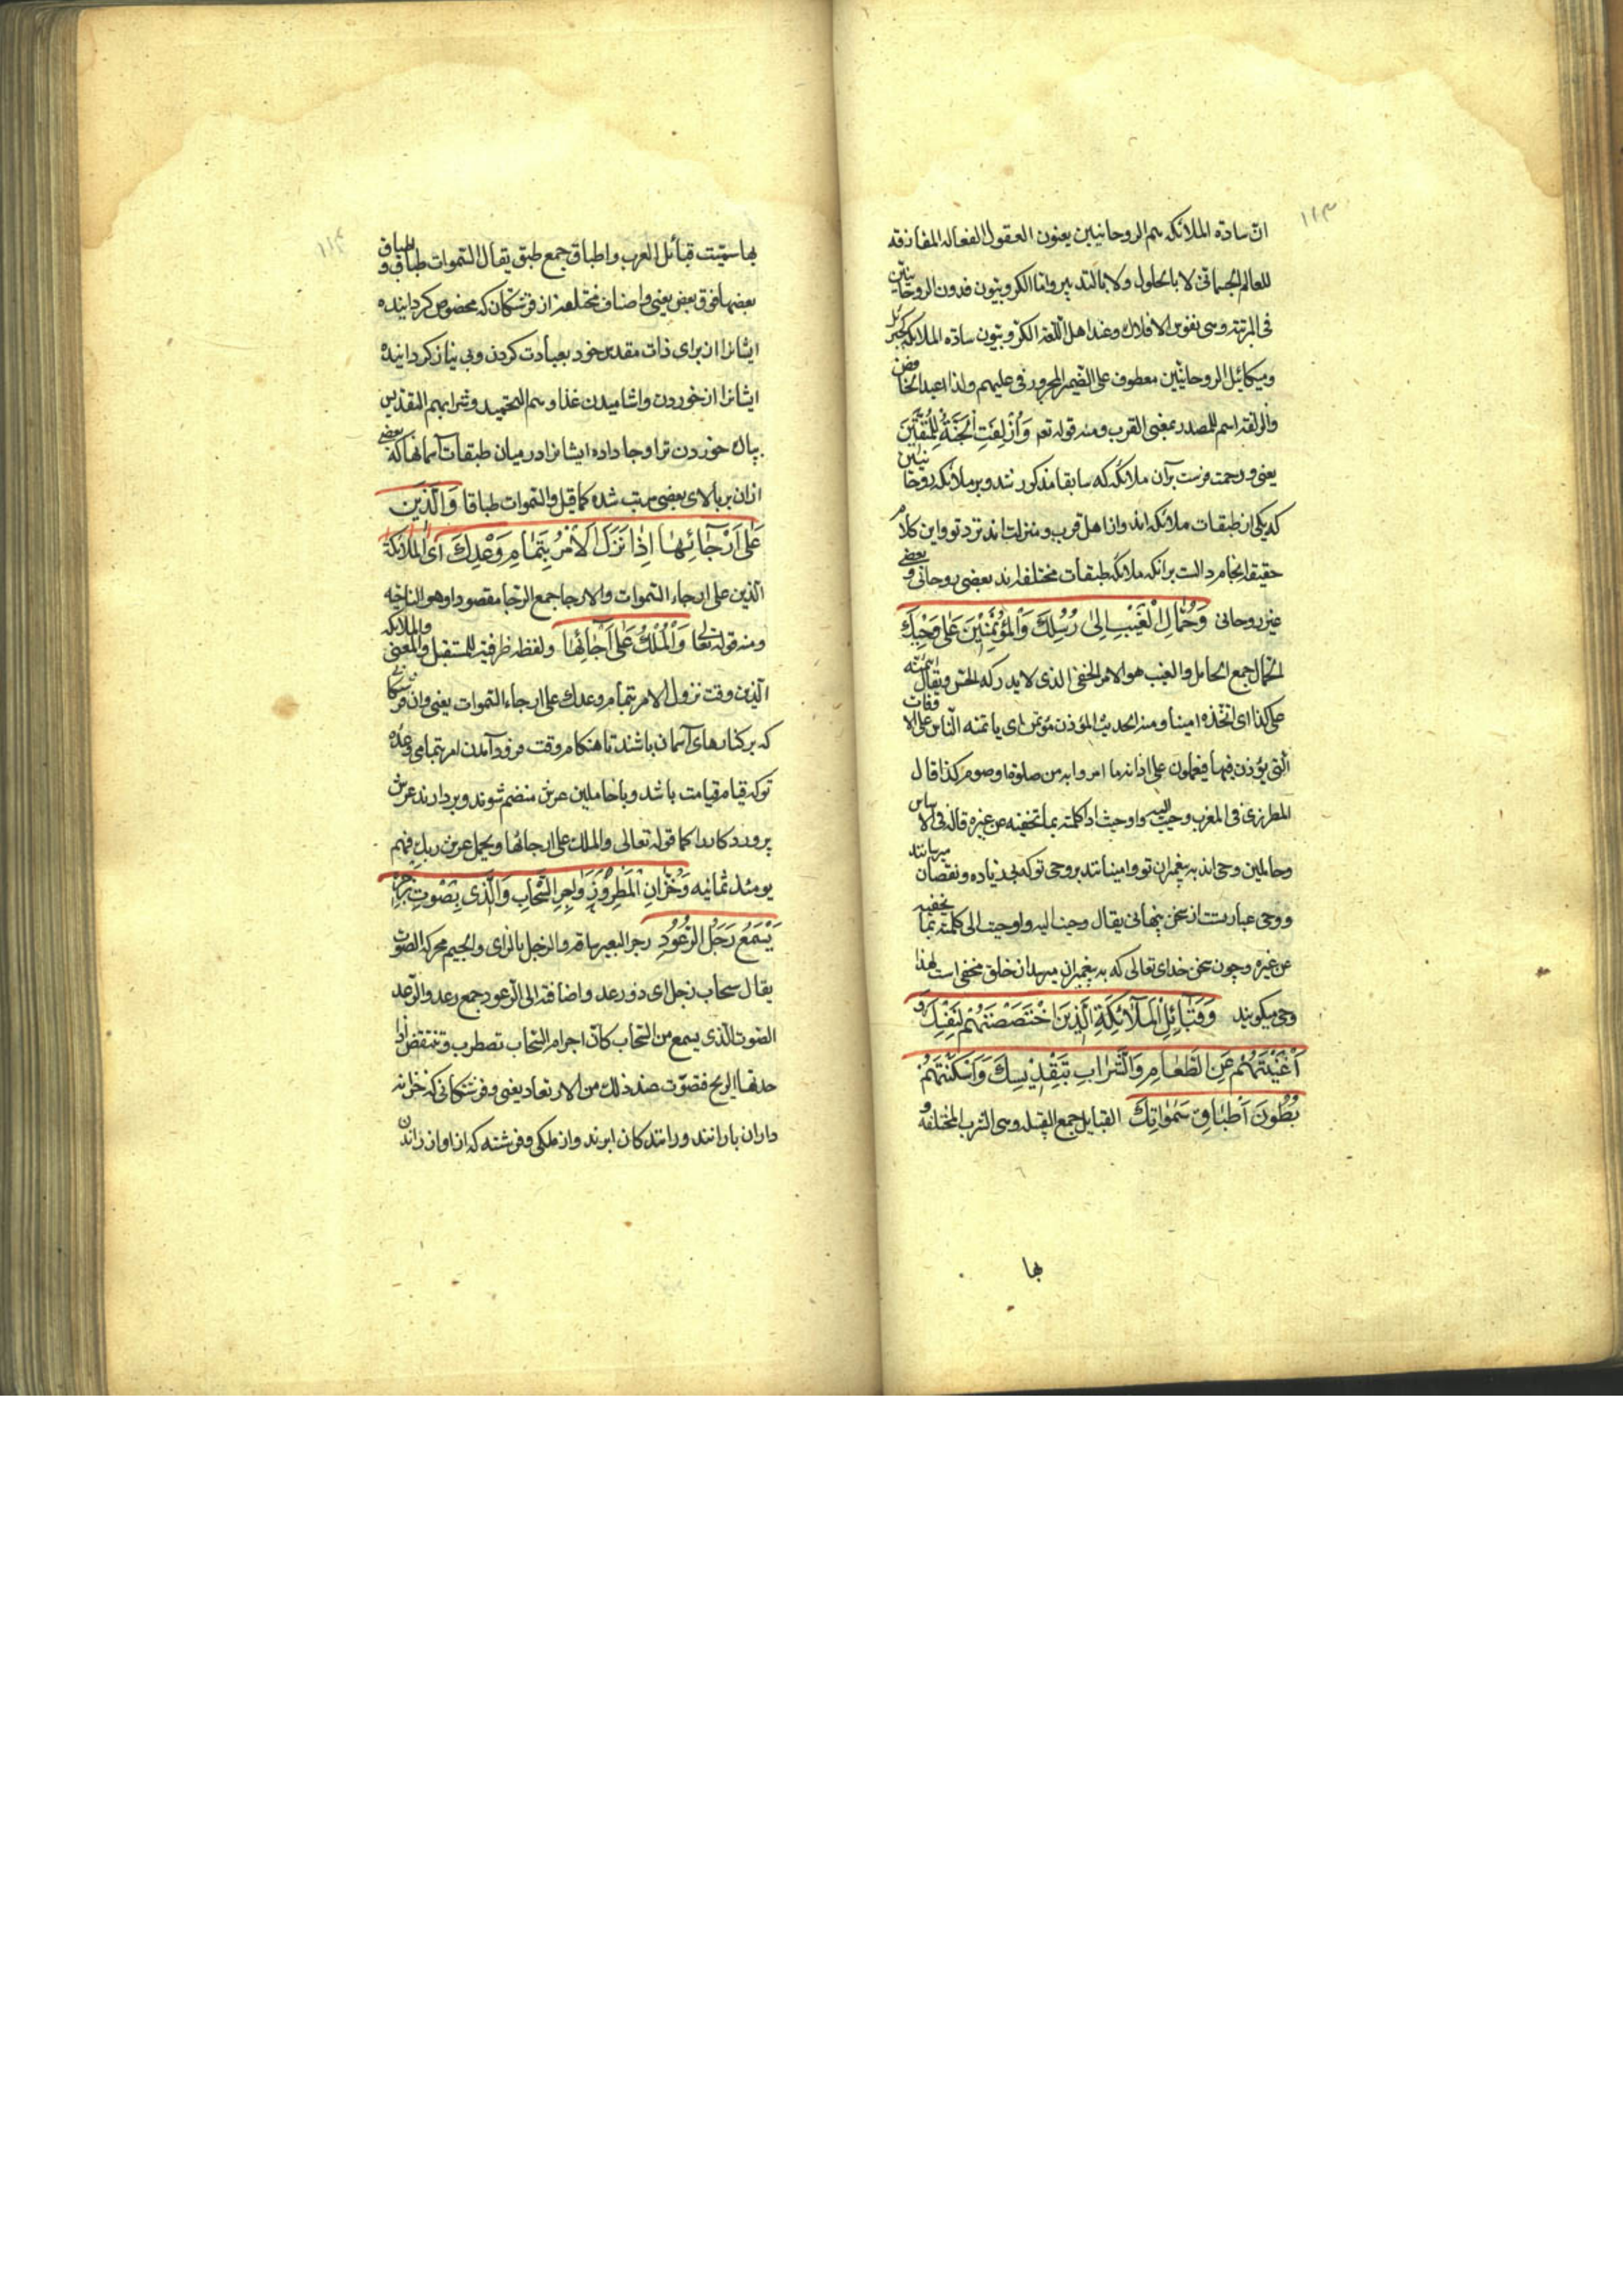 ١١٣
ان سادة الملائكه هم الروحانيين يعنون العقول الفعاله المفارقه
للعالم الجسمانى لا بالحلول ولا بالتدبير واما الكروبيون فدون الروحانيين
فى المرتبة وهى نفوس الافلاك وعند اهل اللغة الكروبيون سادة الملائكه كجبرئيل
وميكائيل الروحانيين معطوف على الضمير المجرور فى عليهم ولذا اعيد الخافض
والزلفة اسم للمصدر بمعنى القرب ومنه قوله تعم وَاُزْلِفَتِ الْجَنَّةُ لِلْمُتَّقِينَ
يعنى ورحمت فرست بر آن ملائكه كه سابقا مذكور شد و بر ملائكه روحانيين
كه يكى از طبقات ملائكه اند و از اهل قرب و منزلت اند نزد تو و اين كلام
حقيقة انجام دالست برانكه ملائكه طبقات مختلفه دارند بعضى روحانى و بعضى
غير روحانى وَحُمّٰالِ الْغَيْبِ اِلٰى رُسُلِكَ وَالْمُؤْتَمَنِينَ عَلٰى وَحْيِكَ
الحمال جمع الحامل والغيب هو الامر الخفى الذى لا يدركه الحس ويقال ائتمنته
على كذا اى اتخذه امينا ومنه الحديث المؤذن مؤتمن اى ياتمنه الناس على الاوقات
التى يؤذن فيها فيعملون على اذانه ما امروا به من صلوة او صوم كذا قال
المطرزى فى المغرب وحيت اليه واوحيت اذا كلمته بما تخفيه عن غيره قاله فى الاساس
وحاملين وحى اند به پيغمبران تو و امينانند بر وحى تو كه بى زياده و نقصان ميرسانند
و وحى عبارتست از سخن پنهانى يقال وحيت اليه واوحيت الى كلمته بما تخفيه
عن غيره و چون سخن خداى تعالى كه به پيغمبران ميرسد از خلق مخفى است لهذا
وحى ميكويند وَقَبٰائِلِ الْمَلٰائِكَةِ الَّذِينَ اخْتَصَصْتَهُمْ لِنَفْسِكَ وَ
اَغْنَيْتَهُمْ عَنِ الطَّعٰامِ وَالشَّرٰابِ بِتَقْدِيسِكَ وَاَسْكَنْتَهُمْ
بُطُونَ اَطْبٰاقِ سَمٰوٰاتِكَ القبايل جمع القبيله وهى الشرب المختلفه و
بها
١١٤
بها سميت قبائل العرب واطباق جمع طبق يقال السموات طباق و اطباق
بعضها فوق بعض يعنى و اصناف مختلفه از فرشتكان كه مخصوص كردانيده
ايشانرا از براى ذات مقدس خود بعبادت كردن و بى نياز كردانيده
ايشانرا از خوردن و اشاميدن غذاوهم التحميد وشرابهم التقديس
بپاك خوردن ترا و جا داده ايشانرا در ميان طبقات آسمانها كه بعضى
ازان بر بالاى بعضى مرتب شده كما قيل والسموات طباقا وَالَّذِينَ
عَلٰى اَرْجٰائِهٰا اِذٰا نَزَلَ الْاَمْرُ بِتَمٰامِ وَعْدِكَ اى الملائكة
الذين على ارجاء السموات والارجا جمع الرجا مقصورا وهو الناحيه
ومنه قوله تعالى وَالْمَلَكُ عَلٰى اَرْجٰائِهٰا ولفظه اذا ظرفية للمستقبل والمعنى والملائكه
الذين وقت نزول الامر بتمام وعدك على ارجاء السموات يعنى و ان فرشتكان
كه بر كنارهاى آسمان باشند تا هنكام وقت فرود آمدن امر بتمامى وعده
تو كه قيام قيامت باشد و با حاملين عرش منضم شوند و بردارند عرش
پروردكار را كما قوله تعالى والملك على ارجائها ويحمل عرش ربك فوقهم
يومئذ ثمانيه وَخُزّٰانِ الْمَطَرِ وَزَوٰاجِرِ السَّحٰابِ وَالَّذِى بِصَوْتِ زَجْرِهِ
يُسْمَعُ زَجَلُ الرُّعُودِ زجر البعير ساقه والزجل بالزاى والجيم محركه الصوت
يقال سحاب زجل اى ذو رعد واضافته الى الرعود جمع رعد والرعد
الصوت الذى يسمع من السحاب كان اجرام السحاب تضطرب وتنتقض اذا
حدتها الريح فتصوت عند ذلك من الارتعاد يعنى و فرشتكانى كه خزانه
داران بارانند و رانندكان ابرند و ان ملكى و فرشته كه از اواز راندن